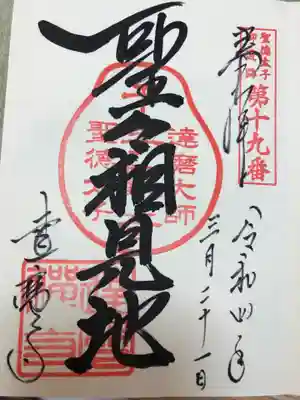 聖徳太子
第十九番
奉拝
令和四年
三月二十一日
達磨大師
聖徳太子
聖々相見地
達磨寺